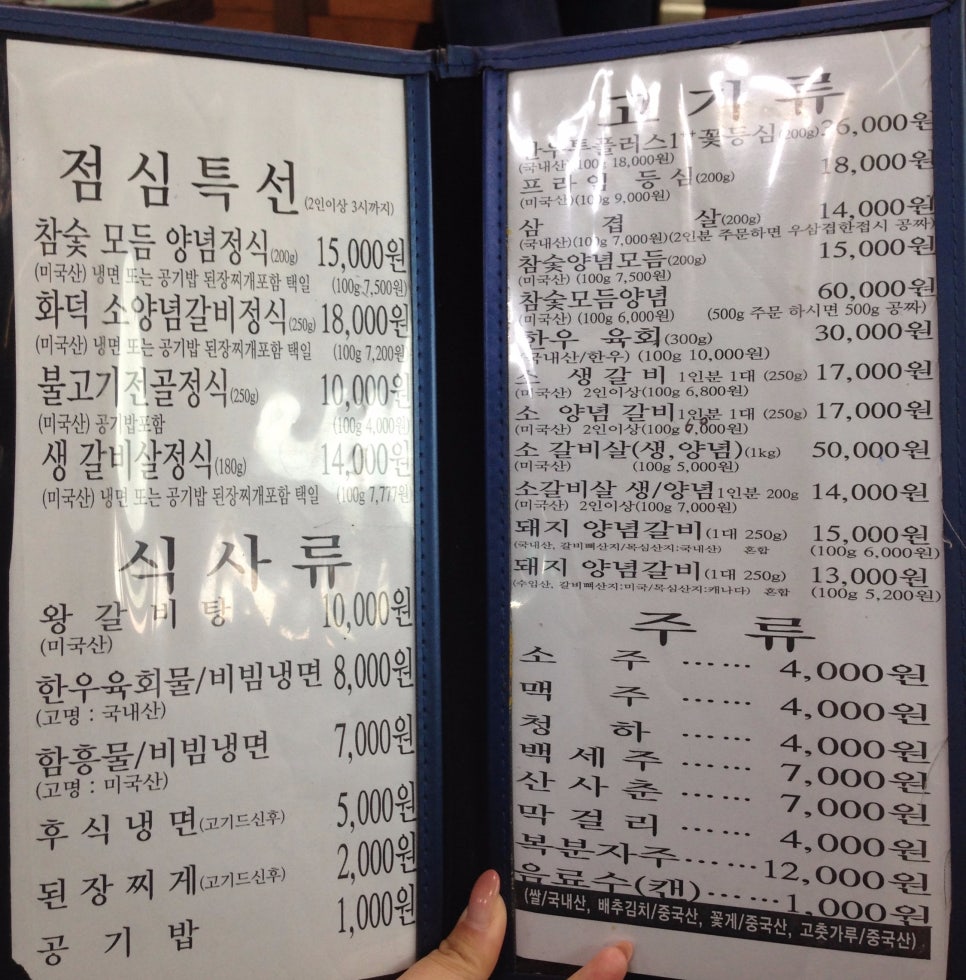 점심특선 (2인이상 3시까지)
참숯 모듬 양념정식(200g) 15,000원
(미국산) 냉면 또는 공기밥 된장찌개포함 택일 (100g 7,500원)
화덕 소양념갈비정식(250g) 18,000원
(미국산) 냉면 또는 공기밥 된장찌개포함 택일 (100g 7,200원)
불고기전골정식(250g) 10,000원
(미국산) 공기밥포함 (100g 4,000원)
생 갈비살정식(180g) 14,000원
(미국산) 냉면 또는 공기밥 된장찌개포함 택일 (100g 7,777원)
식사류
왕갈비탕 10,000원
(미국산)
한우육회물/비빔냉면 8,000원
(고명 : 국내산)
함흥물/비빔냉면 7,000원
(고명 : 미국산)
후식냉면(고기드신후) 5,000원
된장찌게(고기드신후) 2,000원
공기밥 1,000원
고기류
한우투플러스1++꽃등심(200g) 36,000원
(국내산) (100g 18,000원)
프라임 등심(200g) 18,000원
(미국산)(100g 9,000원)
삼겹살(200g) 14,000원
(국내산)(100g 7,000원)(2인분 주문하면 우삼겹한접시 공짜)
참숯양념모듬(200g) 15,000원
(미국산) (100g 7,500원)
참숯모듬양념 60,000원
(미국산) (100g 6,000원) (500g 주문 하시면 500g 공짜)
한우 육회(300g) 30,000원
(국내산/한우) (100g 10,000원)
소 생갈비 1인분 1대 (250g) 17,000원
(미국산) 2인이상(100g 6,800원)
소 양념 갈비 1인분 1대 (250g) 17,000원
(미국산) 2인이상(100g 6,800원)
소 갈비살(생,양념)(1kg) 50,000원
(미국산) (100g 5,000원)
소갈비살 생/양념 1인분 200g 14,000원
(미국산) 2인이상(100g 7,000원)
돼지 양념갈비(1대 250g) 15,000원
(국내산, 갈비뼈산지/목심산지:국내산) 혼합 (100g 6,000원)
돼지 양념갈비(1대 250g) 13,000원
(수입산, 갈비뼈산지:미국/목심산지:캐나다) 혼합 (100g 5,200원)
주류
소주 …… 4,000원
맥주 …… 4,000원
청하 …… 4,000원
백세주 …… 7,000원
산사춘 …… 7,000원
막걸리 …… 4,000원
복분자주 …… 12,000원
음료수(캔) …… 1,000원
(쌀/국내산, 배추김치/중국산, 꽃게/중국산, 고춧가루/중국산)